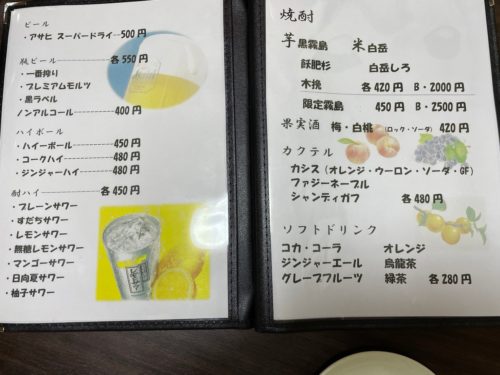 ビール
・アサヒ スーパードライ--500円
瓶ビール----------各550円
・一番搾り
・プレミアムモルツ
・黒ラベル
ノンアルコール--------400円
ハイボール
・ハイーボール--------450円
・コークハイ----------480円
・ジンジャーハイ------480円
酎ハイ----------各450円
・プレーンサワー
・すだちサワー
・レモンサワー
・無糖レモンサワー
・マンゴーサワー
・日向夏サワー
・柚子サワー
焼酎
芋 黒霧島 米 白岳
飫肥杉 白岳しろ
木挽 各420円 B・2000円
限定霧島 450円 B・2500円
果実酒 梅・白桃 (ロック・ソーダ) 420円
カクテル
カシス(オレンジ・ウーロン・ソーダ・GF)
ファジーネーブル
シャンディガフ 各480円
ソフトドリンク
コカ・コーラ オレンジ
ジンジャーエール 烏龍茶
グレープフルーツ 緑茶 各280円